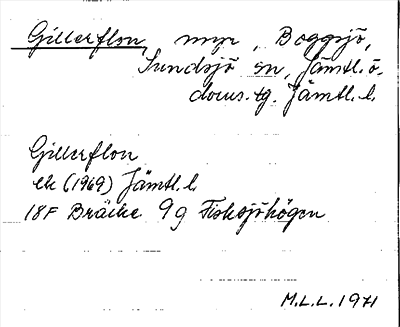 Gillerflon, myr, Boggsjö,
Sundsjö sn, Jämtl. ö.
doms.tg. Jämtl. l.
Gillerflon
ek (1969) Jämtl. l
18F Bräcke 9g Fisksjöhögen
M.L.L. 1971